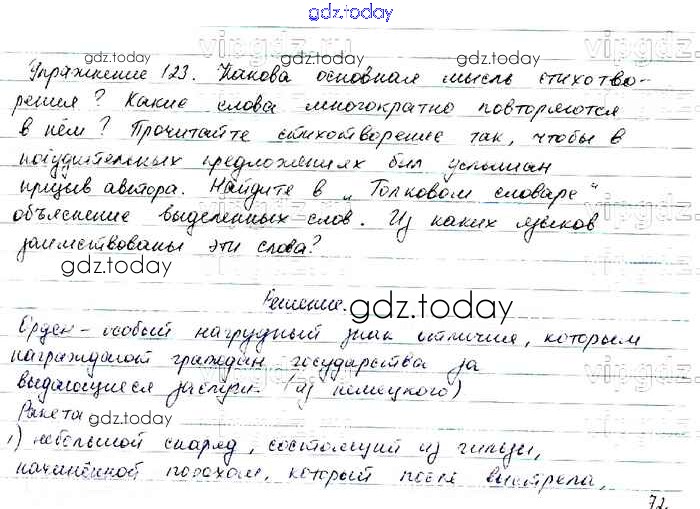 gdz.today
Упражнение 123. Какова основная мысль стихотво-
рения? Какие слова многократно повторяются
в нём? Прочитайте стихотворение так, чтобы в
побудительных предложениях был услышан
призыв автора. Найдите в „Толковом словаре“
объяснение выделенных слов. Из каких языков
заимствованы эти слова?
gdz.today
Решение.
gdz.today
Орден - особый нагрудный знак отличия, которым
награждают граждан государства за
выдающиеся заслуги. (из немецкого)
Ракета
gdz.today
1) небольшой снаряд, состоящий из гильзы,
начинённой порохом, который после выстрела,
72